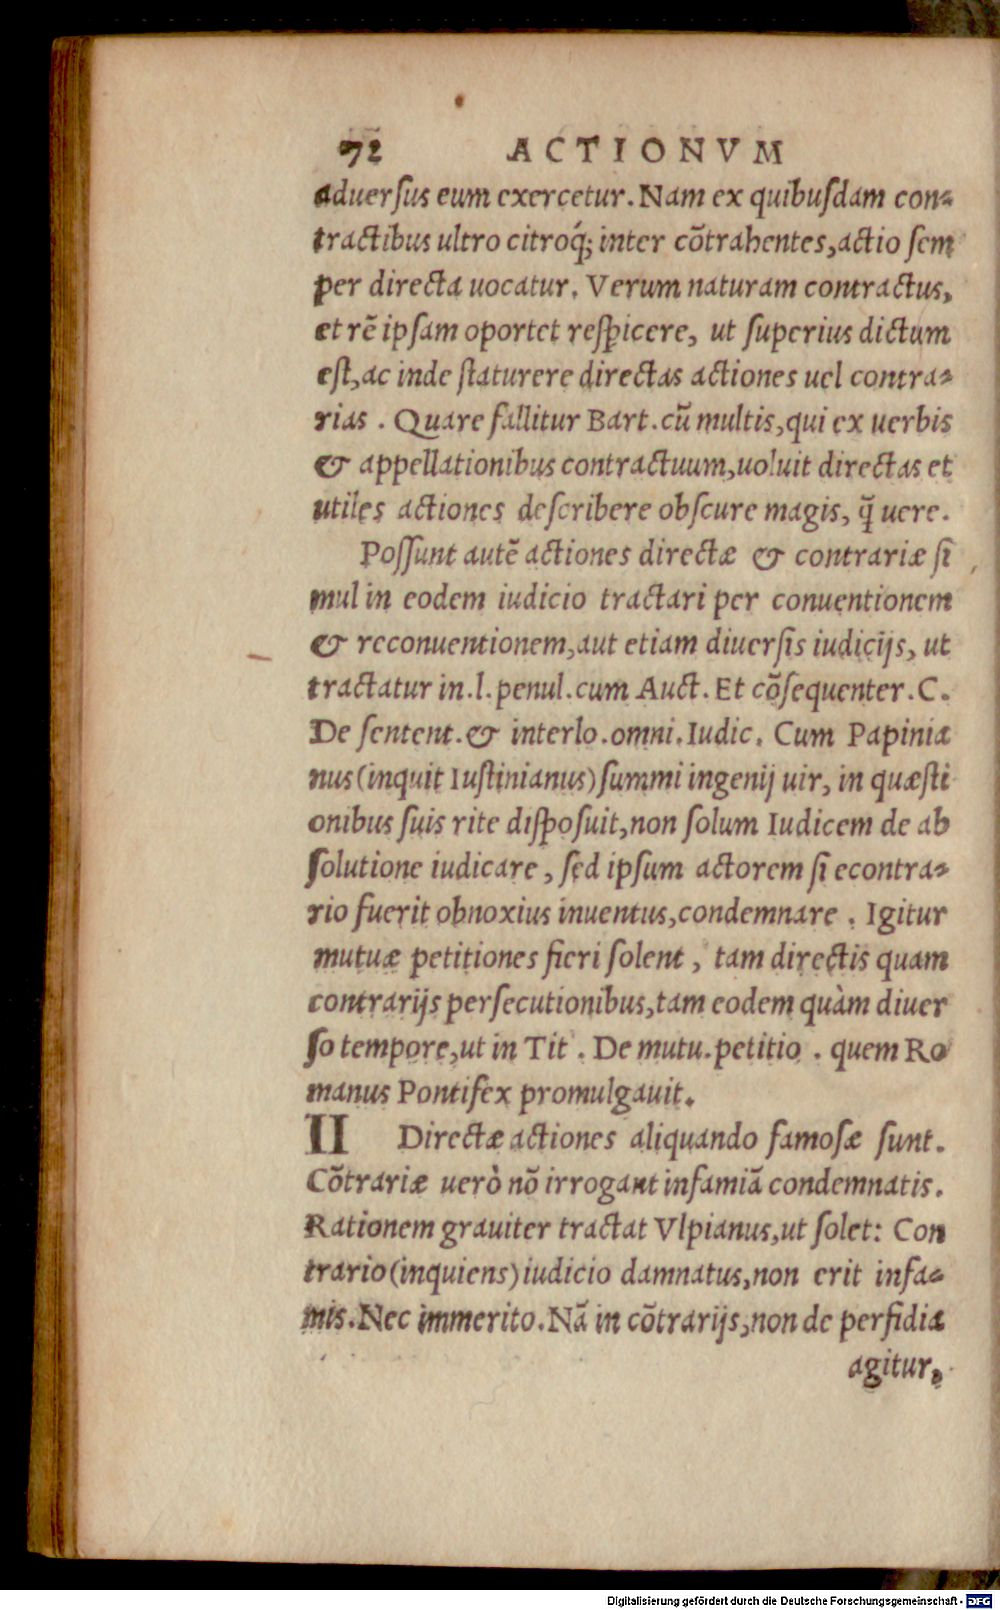 72 ACTIONVM
aduerſus eum exercetur. Nam ex quibuſdam con-
tractibus ultro citroq́; inter cõtrahentes, actio ſem
per directa uocatur. Verum naturam contractus,
et rẽ ipſam oportet reſpicere, ut ſuperius dictum
eſt, ac inde ſtaturere directas actiones uel contra-
rias. Quare fallitur Bart. cũ multis, qui ex uerbis
& appellationibus contractuum, uoluit directas et
utiles actiones deſcribere obſcure magis, q̃ uere.
Poſſunt autẽ actiones directæ & contrariæ ſi
mul in eodem iudicio tractari per conuentionem
& reconuentionem, aut etiam diuerſis iudicijs, ut
tractatur in. l. penul. cum Auct. Et cõſequenter. C.
De ſentent. & interlo. omni. Iudic. Cum Papinia
nus (inquit Iuſtinianus) ſummi ingenij uir, in quæſti
onibus ſuis rite diſpoſuit, non ſolum Iudicem de ab
ſolutione iudicare, ſed ipſum actorem ſi econtra-
rio fuerit obnoxius inuentus, condemnare. Igitur
mutuæ petitiones fieri ſolent, tam directis quam
contrarijs perſecutionibus, tam eodem quàm diuer
ſo tempore, ut in Tit. De mutu. petitio. quem Ro
manus Pontifex promulgauit.
II Directæ actiones aliquando famoſæ ſunt.
Cõtrariæ uerò nõ irrogant infamiã condemnatis.
Rationem grauiter tractat Vlpianus, ut ſolet: Con
trario (inquiens) iudicio damnatus, non erit infa-
mis. Nec immerito. Nã in cõtrarijs, non de perfidia
agitur,
Digitalisierung gefördert durch die Deutsche Forschungsgemeinschaft - DFG